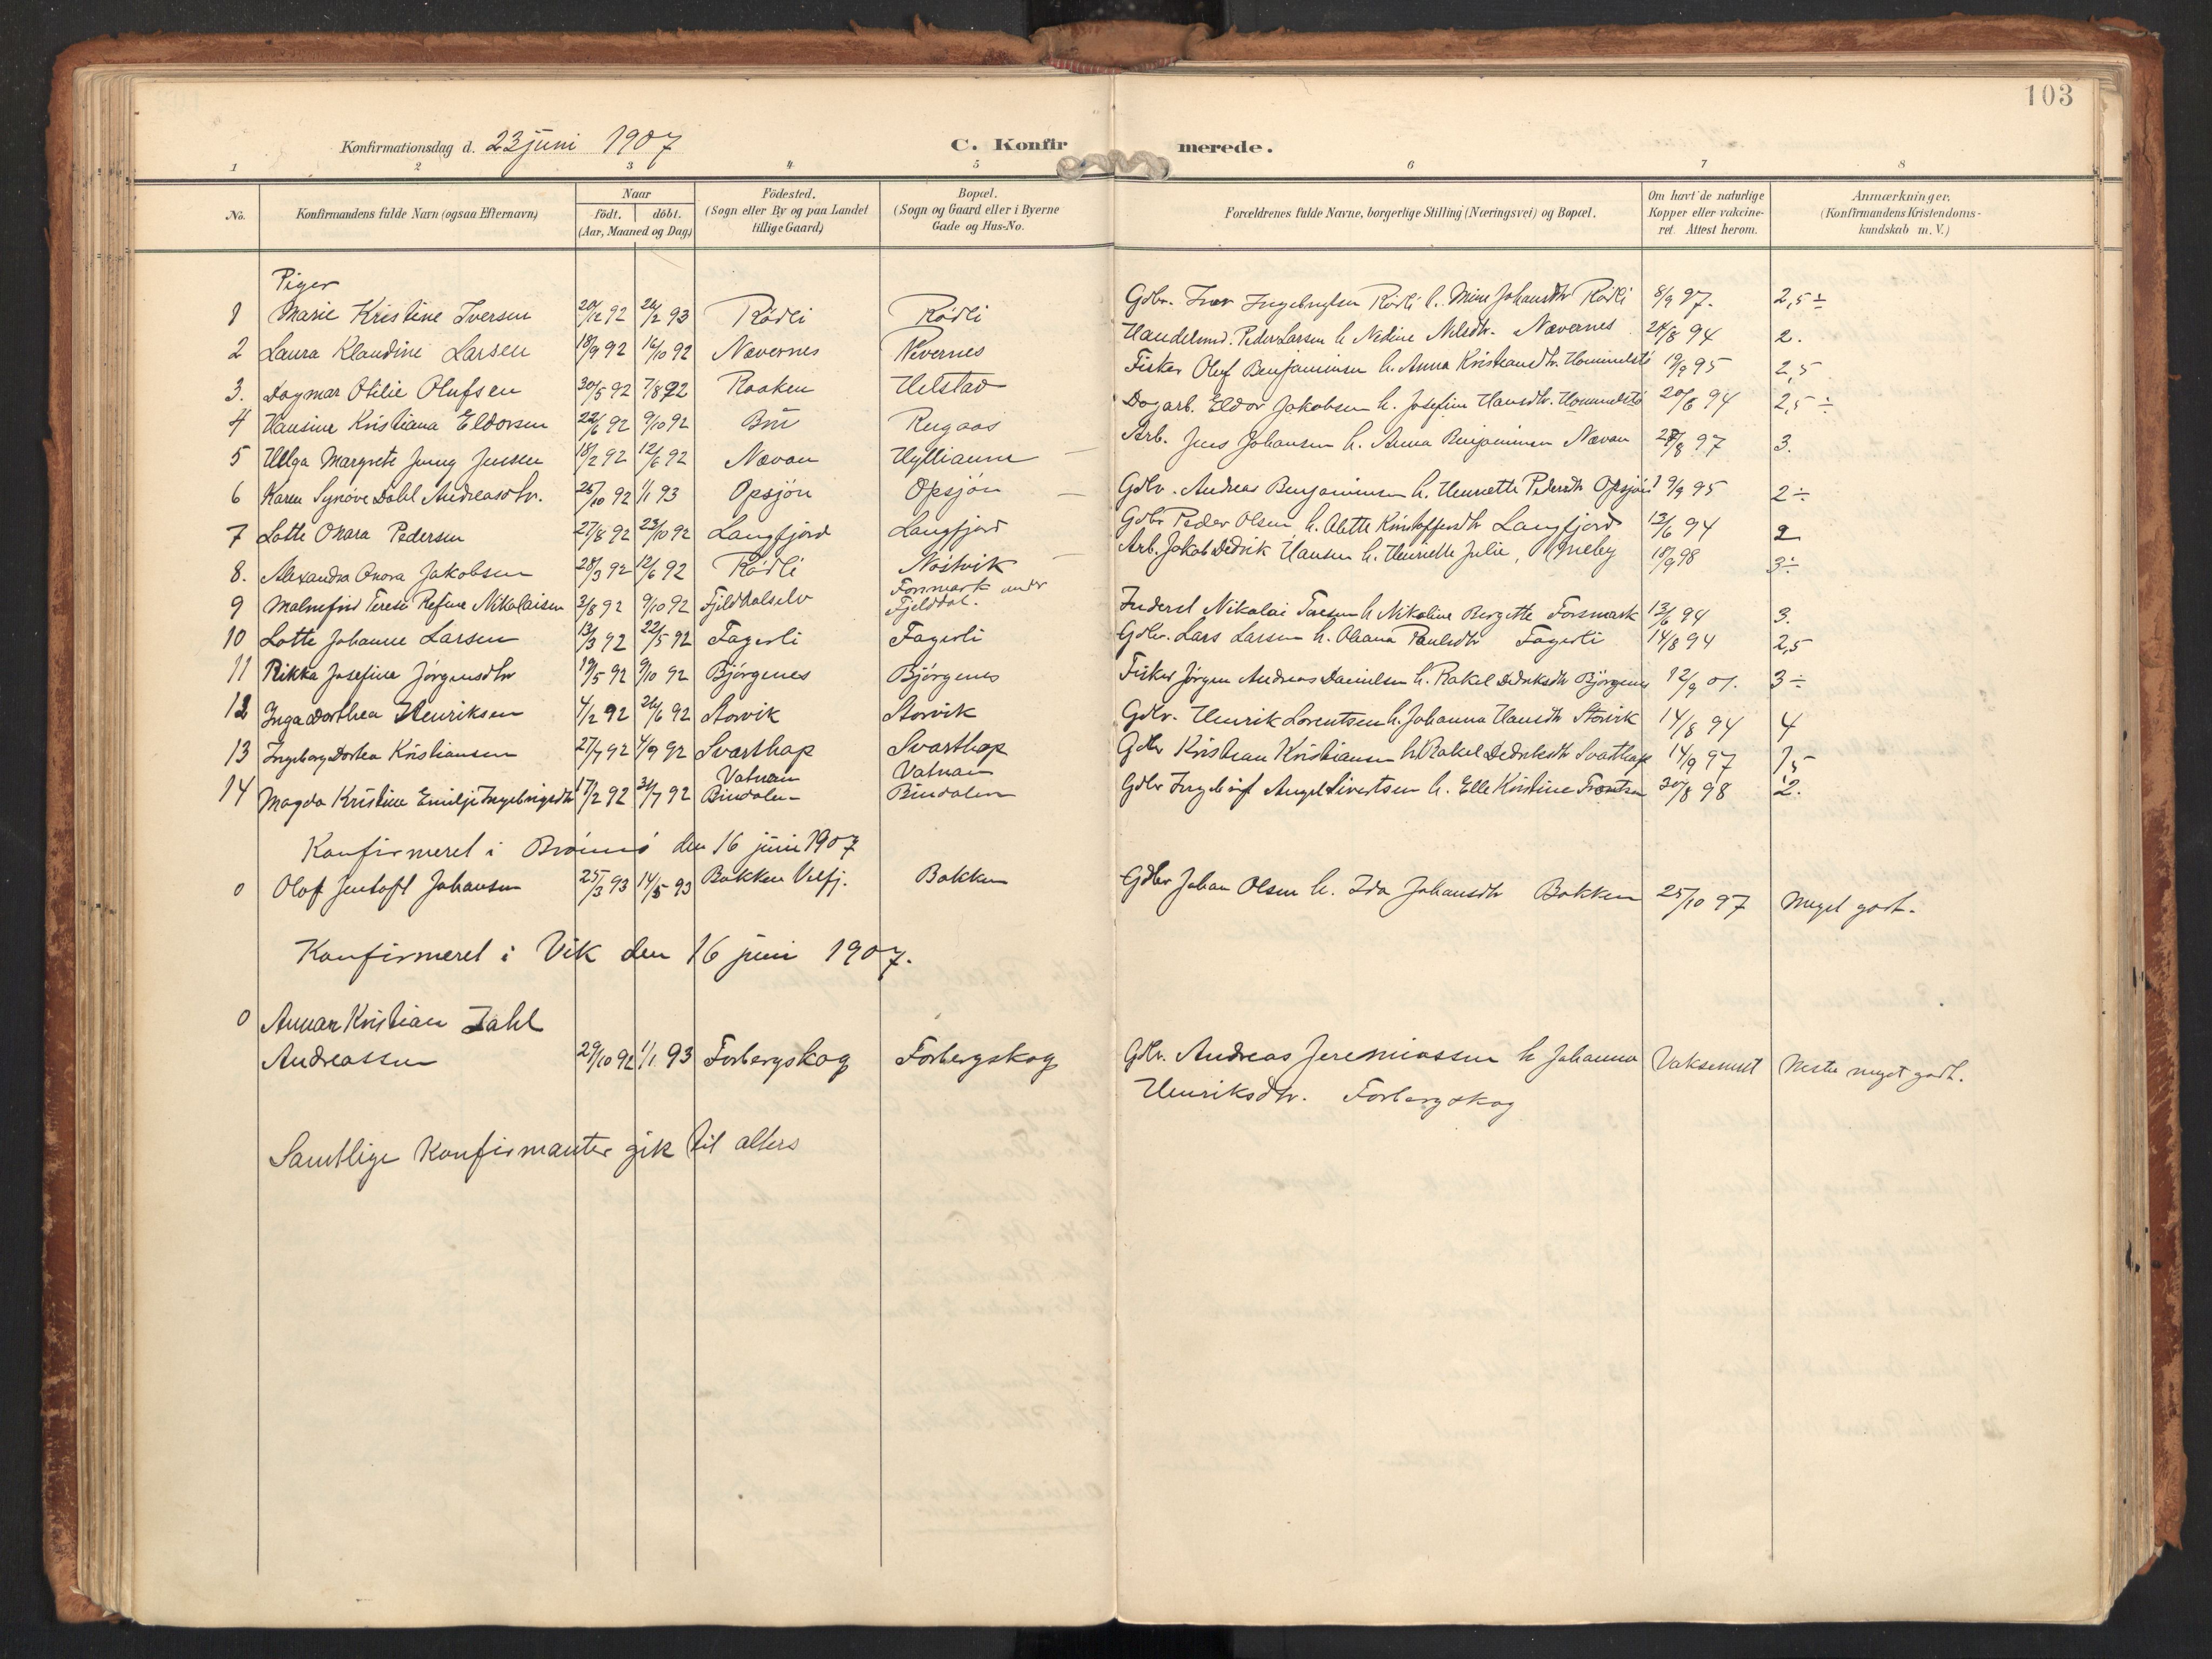 103
Konfirmationsdag d. 23 juni 1907 C. Konfirmerede.
1 2 3 4 5 6 7 8
No. Konfirmandens fulde Navn (ogsaa Efternavn) Naar födt. döbt. (Aar, Maaned og Dag) Födested. (Sogn eller By og paa Landet tillige Gaard) Bopæl. (Sogn og Gaard eller i Byerne Gade og Hus-No. Forældrenes fulde Navne, borgerlige Stilling (Næringsvei) og Bopæl. Om havt de naturlige Kopper eller vakcineret. Attest herom. Anmærkninger. (Konfirmandens Kristendomskundskab m. V.)
Piger
1 Marie Kristine Iversen 20/12 92 26/2 93 Rödli Rödli Gdbr. Iver Ingebrigtsen Rödli h. Mine Johansdtr Rödli 8/9 97. 2,5 ÷
2 Laura Klaudine Larsen 18/9 92 16/10 92 Nævernes Nevernes Handelsmd. Peder Larsen h Nekine Nilsdtr. Nævernes 24/8 94 2.
3. Dagmar Otilie Olufsen 30/5 92 7/8 92 Raaken Helstad Fisker Olef Benjaminsen h. Anna Kristiansdtr. Hommelstö 19/9 95 2,5
4 Hansine Kristiana Eldorsen 22/6 92 9/10 92 Bru Rugaas Dagarb. Eldor Jakobsen h. Josefine Hansdtr. Hommelstö 20/6 94 2,5 ÷
5 Helga Margrete Jenny Jensen 18/2 92 12/6 92 Nævan Hyllianum — Arb. Jens Johansen h. Anna Benjaminsen Nævan 27/8 97 3.
6 Karen Synöve Dahl Andreasdtr. 25/10 92 1/1 93 Opsjön Opsjön — Gdbr. Andreas Benjaminsen h. Henriette Pedersdtr Opsjön 9/9 95 2 ÷
7 Lotte Onara Pedersen 27/8 92 23/10 92 Langfjord Langfjord Gdbr Peder Olsen h. Olette Kristoffersdtr Langfjord 13/6 94 2
8. Alexandra Onora Jakobsen 28/3 92 12/6 92 Rödli Nöstvik — Arb. Jakob Didrik Hansen h. Henriette Julie, 18/9 98 3 ÷
9 Malmfrid Terese Refine Nikolaisen 2/8 92 9/10 92 Fjeldtalselv Forsmark under Fjeldtal. Inderst Nikolai Toresen h Nikoline Bergitte Forsmark 13/6 94 3.
10 Lotte Johanne Larsen 13/3 92 22/5 92 Fagerli Fagerli Gdbr. Lars Larsen h. Oleana Paulsdtr Fagerli 14/8 94 2,5
11 Rikka Josefine Jörgensdtr 19/5 92 9/10 92 Björgenes Björgenes Fisker Jörgen Andreas Danielsen h. Rakel Didriksdtr Björgenes 12/9 01. 3 ÷
12 Inga Dorthea Henriksen 4/2 92 26/6 92 Storvik Storvik Gdbr. Henrik Lorentsen h. Johanna Hansdtr Storvik 14/8 94 4
13 Ingeborg Dortea Kristiansen 27/7 92 4/9 92 Svarthop Svarthop Gdbr Kristian Kristiansen h. Rakel Didriksdtr Svarthop 14/9 97 1,5
14 Magda Kristine Emilje Ingebrigtsdtr 17/2 92 31/7 92 Vatnan Bindalen Vatnan Bindalen Gdbr Ingebrigt Angel Sivertsen h. Elle Kirstine Trontsen 30/8 98 2.
Konfirmeret i Brönnö den 16 juni 1907
0 Olaf Jentoft Johansen 25/3 93 14/5 93 Bakken Velfj. Bakken Gdbr Johan Olsen h. Ida Johansdtr Bakken 25/10 97 Meget godt.
Konfirmeret i Vik den 16 juni 1907.
0 Annar Kristian Zahl
Andreassen 29/10 92 1/1 93 Forbergskog Forbergskog Gdbr. Andreas Jeremiassen h Johanna Vaksineret Nesten meget godt.
Henriksdtr. Forbergskog
Samtlige Konfirmanter gik til alters